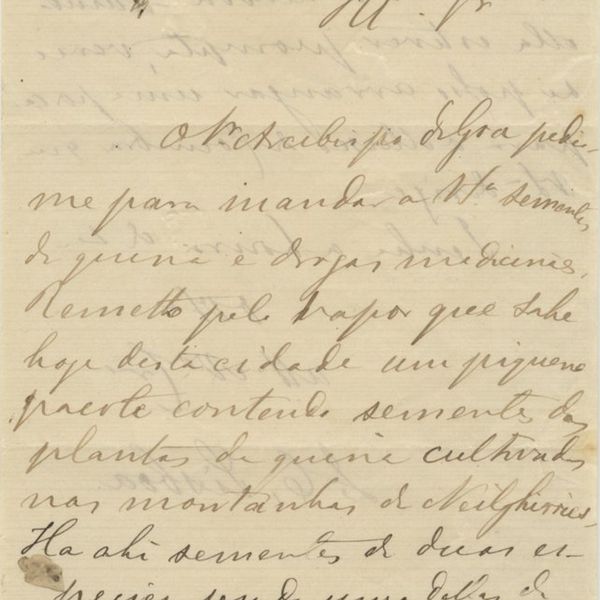 Ill. Sr
O Sr Arcebispo de Goa pediu-
me para mandar a Va sementes
de quina e drogas medicinaes,
Remetto pelo vapor que sahe
hoje desta cidade um piqueno
pacote contendo sementes das
plantas de quina cultivadas
nas montanhas de Neilghirries,
Ha ahi sementes de duas es-
pecies sendo uma dellas de